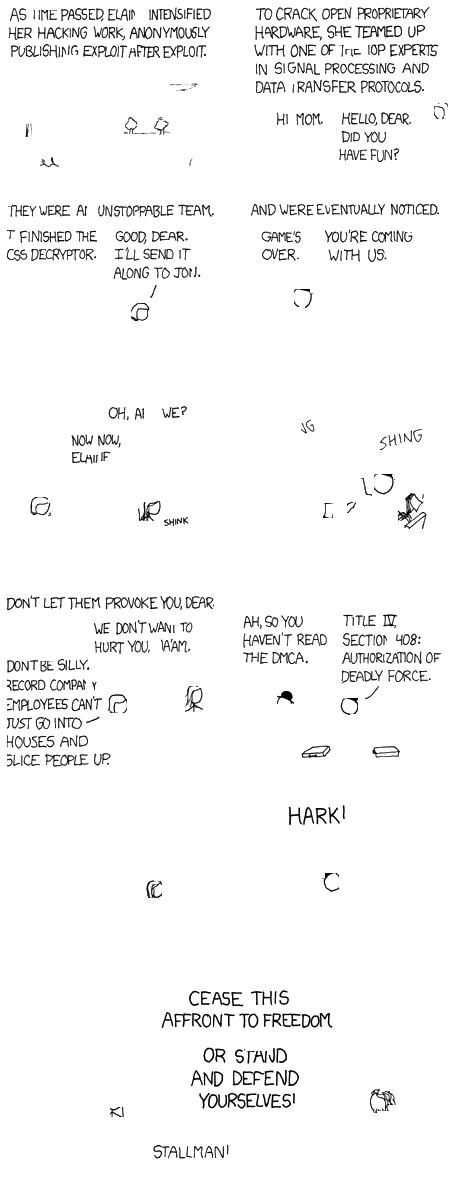 AS TIME PASSED, ELAINE INTENSIFIED
HER HACKING WORK, ANONYMOUSLY
PUBLISHING EXPLOIT AFTER EXPLOIT.
TO CRACK OPEN PROPRIETARY
HARDWARE, SHE TEAMED UP
WITH ONE OF THE TOP EXPERTS
IN SIGNAL PROCESSING AND
DATA TRANSFER PROTOCOLS.
HI MOM.
HELLO, DEAR.
DID YOU
HAVE FUN?
THEY WERE AN UNSTOPPABLE TEAM.
I FINISHED THE
CSS DECRYPTOR.
GOOD, DEAR.
I'LL SEND IT
ALONG TO JON.
AND WERE EVENTUALLY NOTICED.
GAME'S
OVER.
YOU'RE COMING
WITH US.
OH, WE?
NOW NOW,
ELAINE
SHINK
SHING
DON'T LET THEM PROVOKE YOU, DEAR.
WE DON'T WANT TO
HURT YOU, MA'AM.
DON'T BE SILLY.
RECORD COMPANY
EMPLOYEES CAN'T
JUST GO INTO
HOUSES AND
SLICE PEOPLE UP.
AH, SO YOU
HAVEN'T READ
THE DMCA.
TITLE IV,
SECTION 408:
AUTHORIZATION OF
DEADLY FORCE.
HARK!
CEASE THIS
AFFRONT TO FREEDOM
OR STAND
AND DEFEND
YOURSELVES!
STALLMAN!